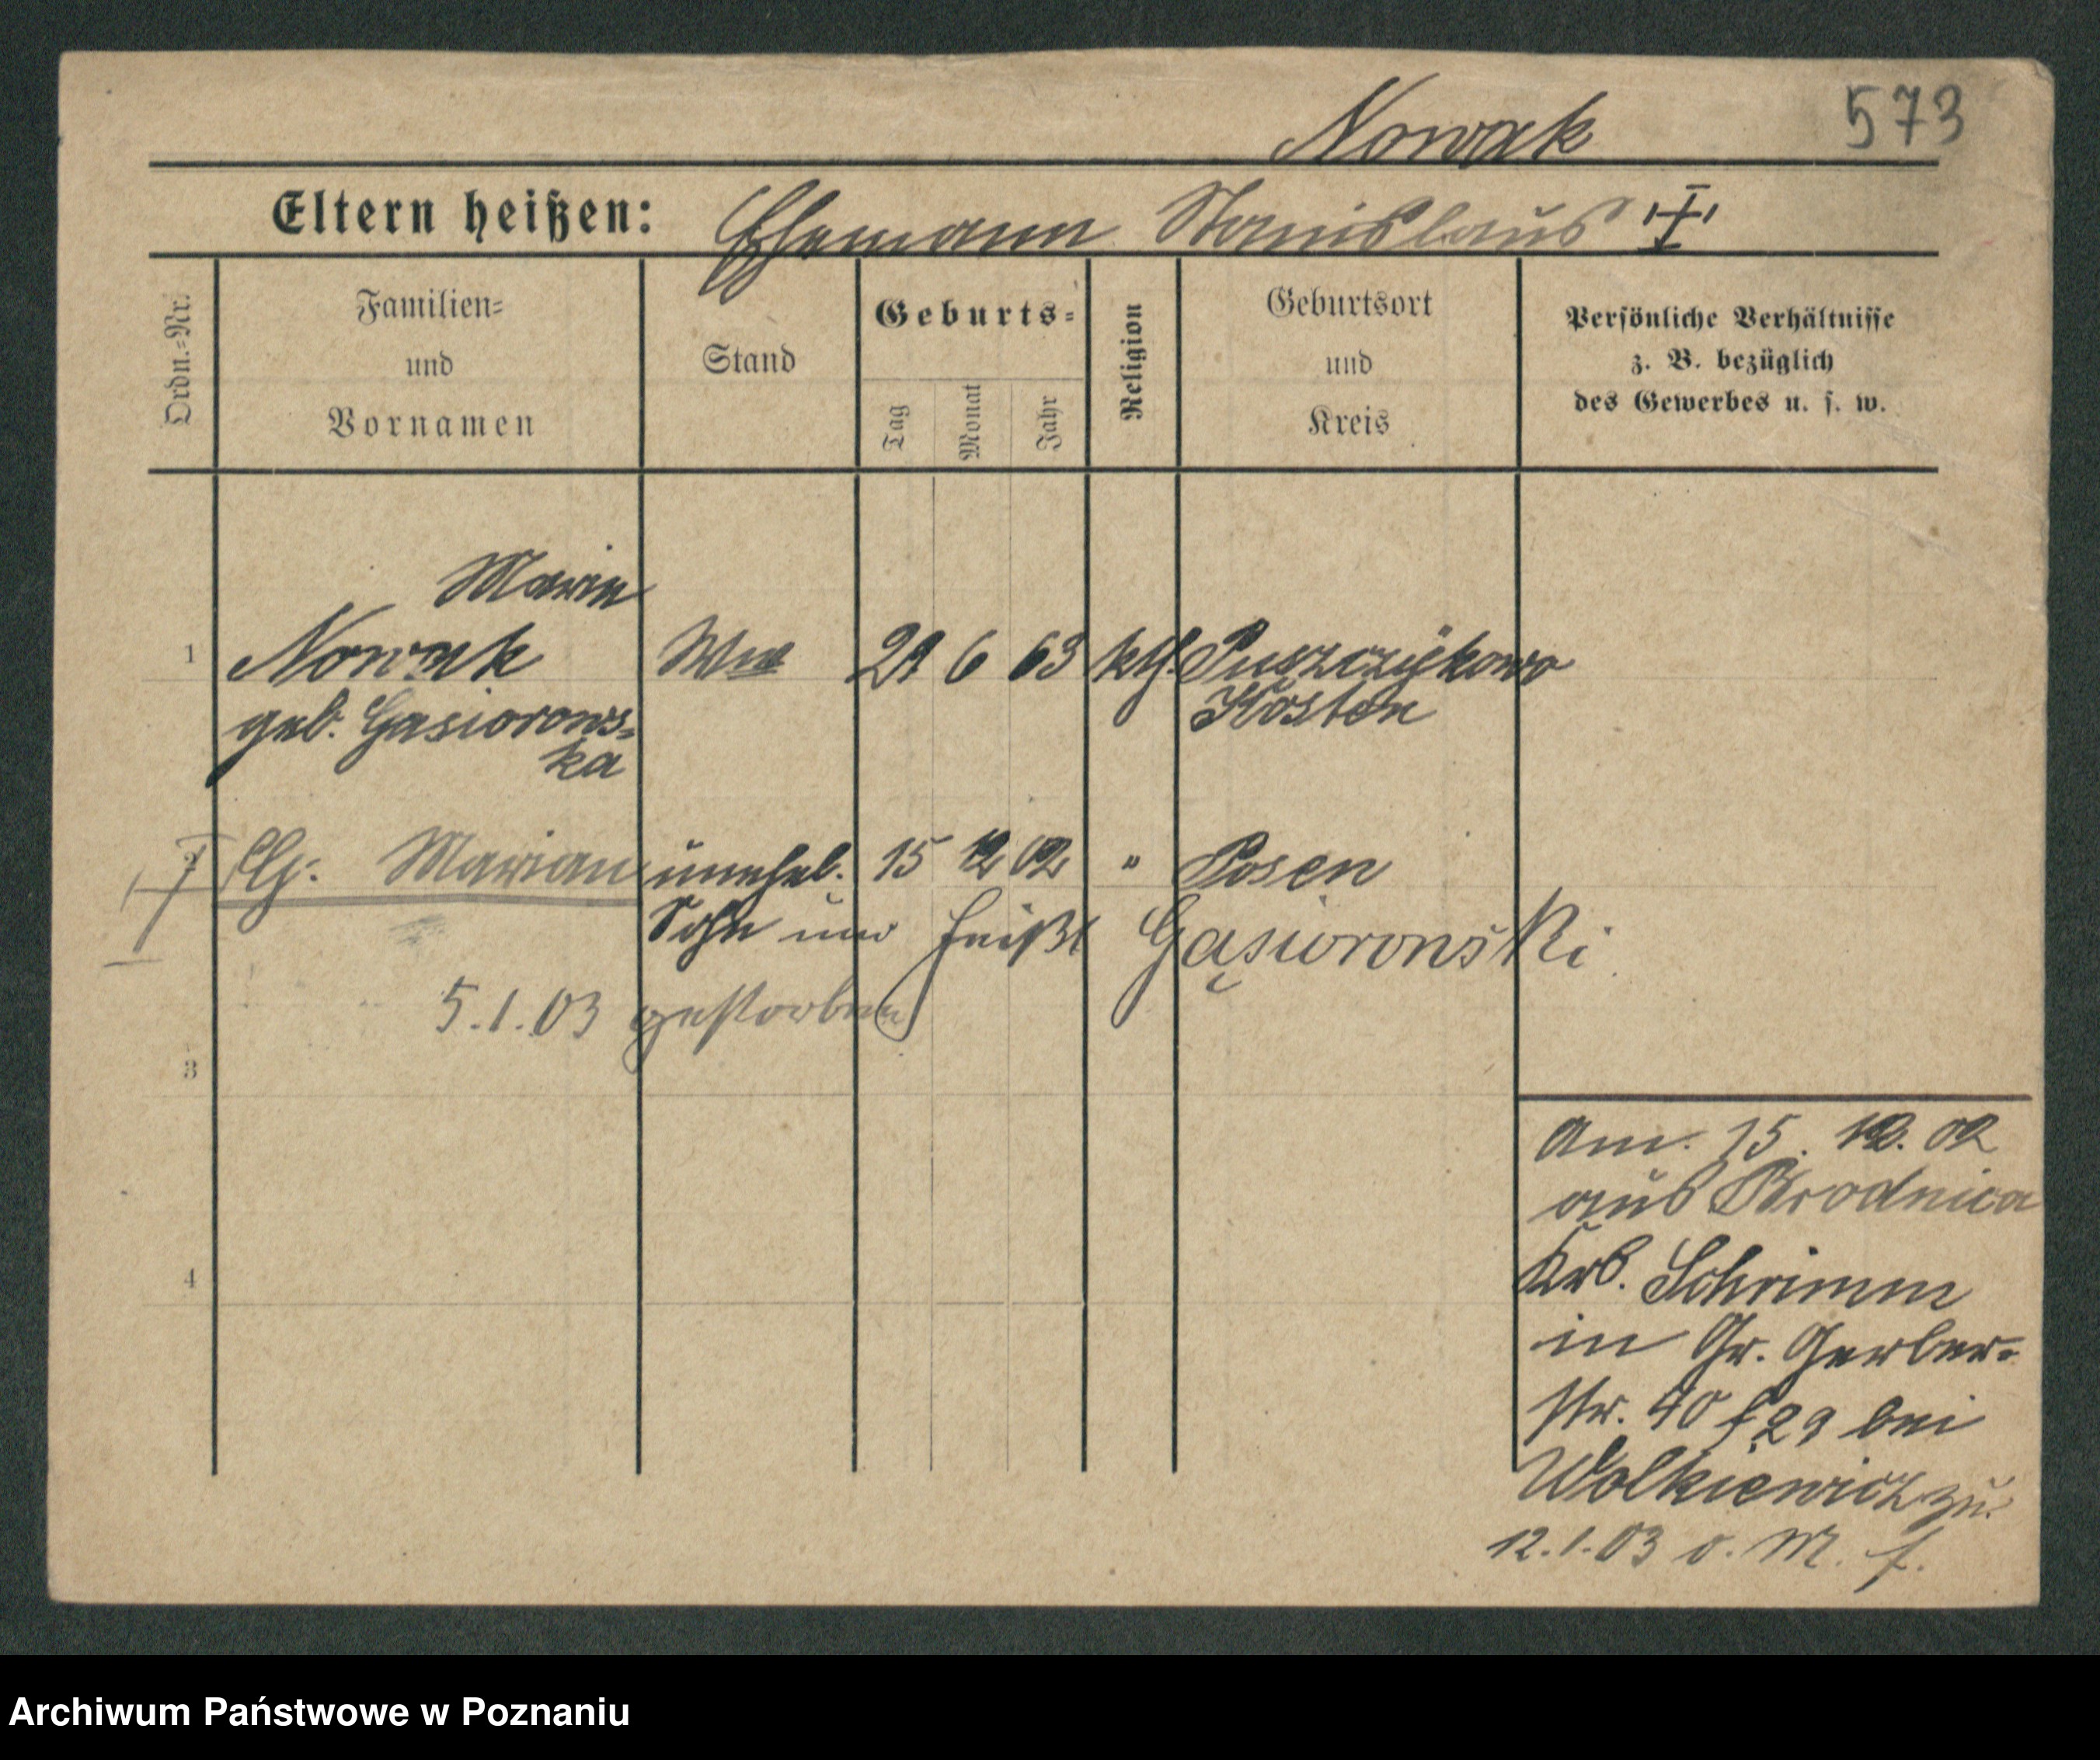 573
Nowak
Eltern heißen: Ehemann Stanislaus †
Ordn.-Nr.
Familien-
und
Vornamen
Stand
Geburts-
Tag
Monat
Jahr
Religion
Geburtsort
und
Kreis
Persönliche Verhältnisse
z. B. bezüglich
des Gewerbes u. s. w.
Marie
1 Nowak Wwe 29 6 63 kth. Puszczykowo
geb. Gasiorows- Kosten
ka
2 Marian unehel. 15 12 02 " Posen
Sohn und heißt Gąsiorowski
5.1.03 gestorben
3
4
Am. 15. 12. 02
aus Brodnica
Krs. Schrimm
in Gr. Gerber-
str. 40 bei
Wolkiewicz zu.
12.1.03 o. M. f.
Archiwum Państwowe w Poznaniu